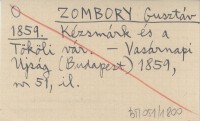 O ZOMBORY Gusztáv
1859. Kézsmárk és a
Tököli vár. – Vasárnapi
Ujság (Budapest) 1859,
nr 51, il.